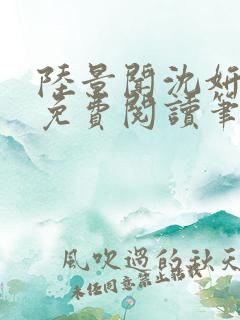 陸景聞沈妍
免費閱讀筆
風吹過的秋天
未經同意禁止轉載